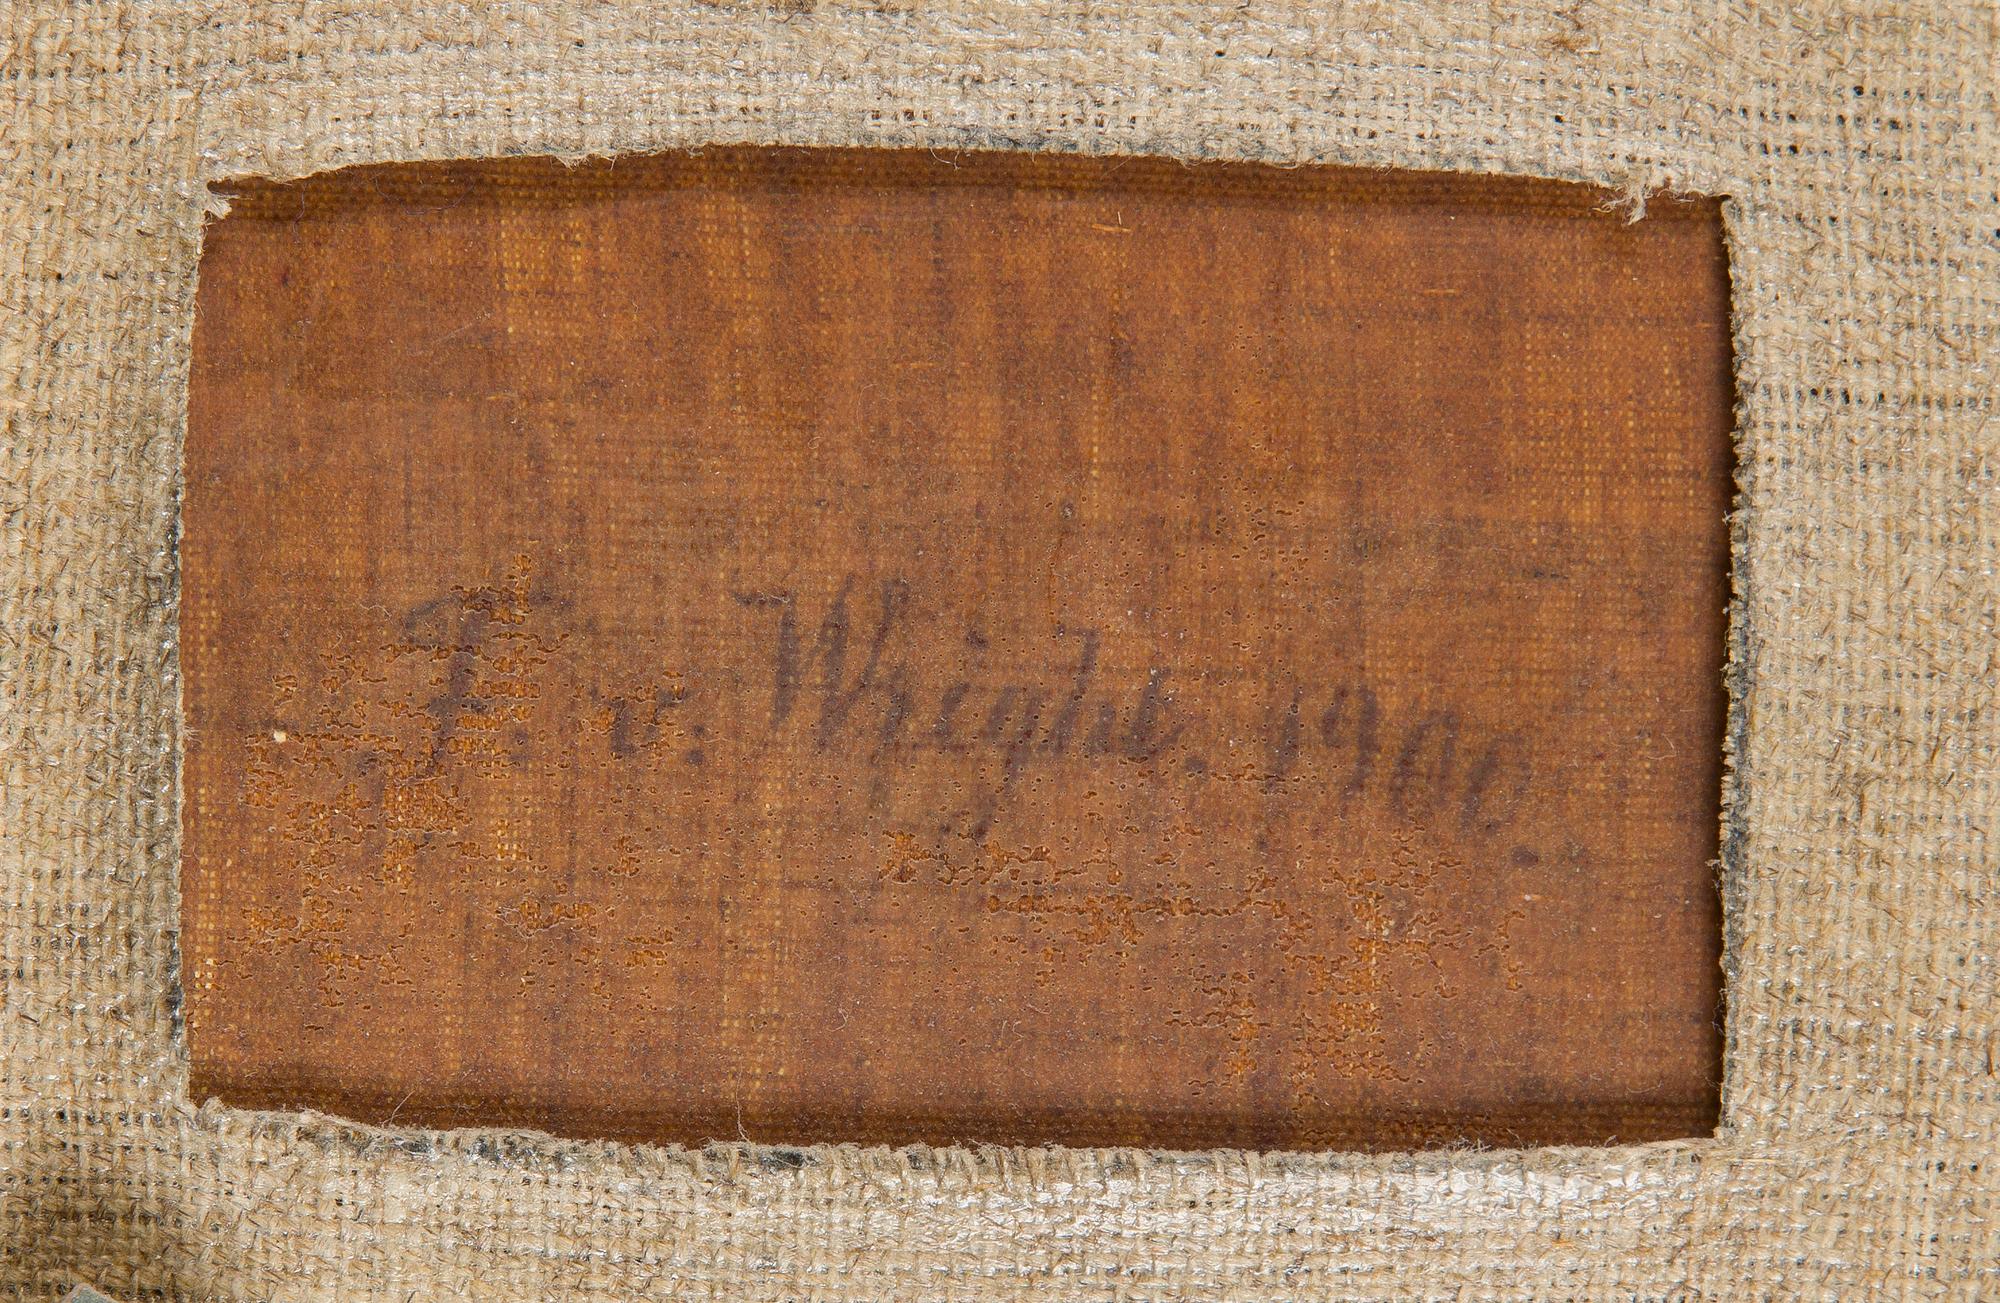 F. v. Wright. 1900.